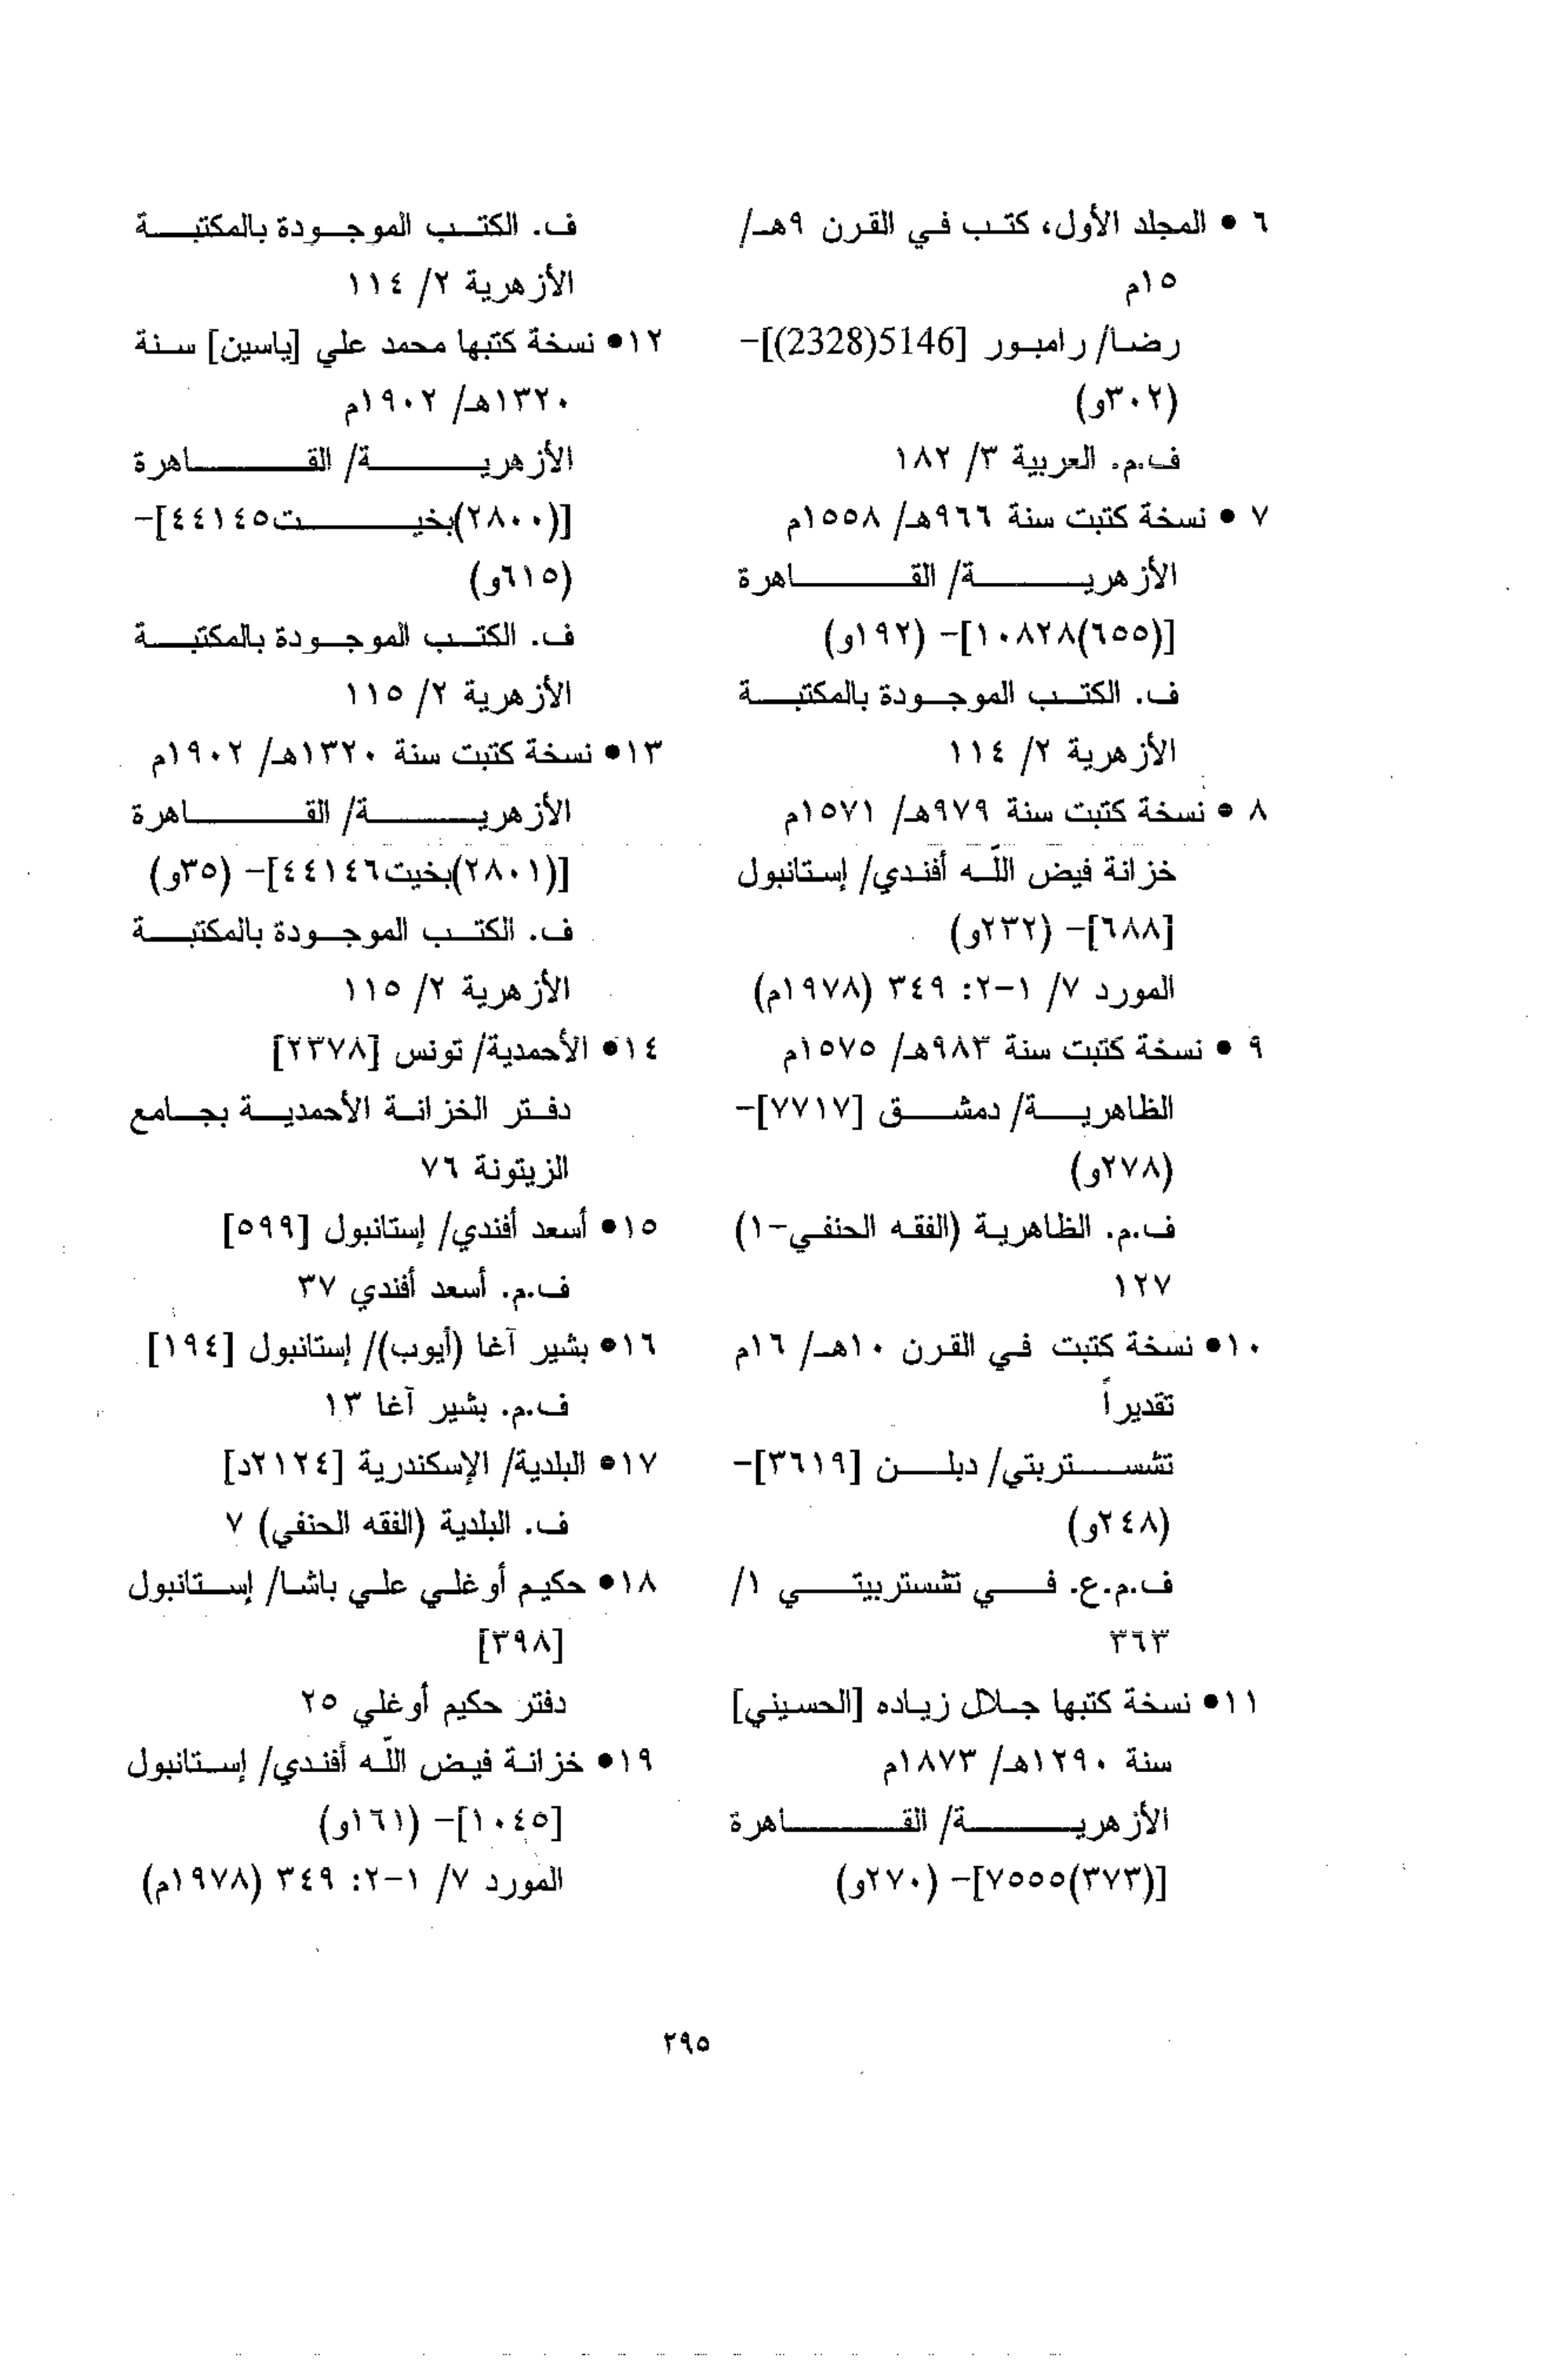 ٦ • المجلد الأول، كتب في القرن ٩هـ/
١٥م
رضا/ رامبور [5146(2328)]-
(٣٠٢و)
ف.م. العربية ٣/ ١٨٢
٧ • نسخة كتبت سنة ٩٦٦هـ/ ١٥٥٨م
الأزهرية/ القاهرة
[(٦٥٥)١٠٨٢٨]- (١٩٢و)
ف. الكتب الموجودة بالمكتبة
الأزهرية ٢/ ١١٤
٨ • نسخة كتبت سنة ٩٧٩هـ/ ١٥٧١م
خزانة فيض اللّه أفندي/ إستانبول
[٦٨٨]- (٢٣٢و)
المورد ٧/ ١-٢: ٣٤٩ (١٩٧٨م)
٩ • نسخة كتبت سنة ٩٨٣هـ/ ١٥٧٥م
الظاهرية/ دمشق [٧٧١٧]-
(٢٧٨و)
ف.م. الظاهرية (الفقه الحنفي-١)
١٢٧
١٠• نسخة كتبت في القرن ١٠هـ/ ١٦م
تقديراً
تشستربتي/ دبلن [٣٦١٩]-
(٢٤٨و)
ف.م.ع. في تشستربيتي ١/
٣٦٣
١١• نسخة كتبها جلال زياده [الحسيني]
سنة ١٢٩٠هـ/ ١٨٧٣م
الأزهرية/ القاهرة
[(٣٧٣)٧٥٥٥]- (٢٧٠و)
ف. الكتب الموجودة بالمكتبة
الأزهرية ٢/ ١١٤
١٢• نسخة كتبها محمد علي [ياسين] سنة
١٣٢٠هـ/ ١٩٠٢م
الأزهرية/ القاهرة
[(٢٨٠٠)بخيت٤٤١٤٥]-
(٦١٥و)
ف. الكتب الموجودة بالمكتبة
الأزهرية ٢/ ١١٥
١٣• نسخة كتبت سنة ١٣٢٠هـ/ ١٩٠٢م
الأزهرية/ القاهرة
[(٢٨٠١)بخيت٤٤١٤٦]- (٣٥و)
ف. الكتب الموجودة بالمكتبة
الأزهرية ٢/ ١١٥
١٤• الأحمدية/ تونس [٢٣٧٨]
دفتر الخزانة الأحمدية بجامع
الزيتونة ٧٦
١٥• أسعد أفندي/ إستانبول [٥٩٩]
ف.م. أسعد أفندي ٣٧
١٦• بشير آغا (أيوب)/ إستانبول [١٩٤]
ف.م. بشير آغا ١٣
١٧• البلدية/ الإسكندرية [٢١٢٤د]
ف. البلدية (الفقه الحنفي) ٧
١٨• حكيم أوغلي علي باشا/ إستانبول
[٣٩٨]
دفتر حكيم أوغلي ٢٥
١٩• خزانة فيض اللّه أفندي/ إستانبول
[١٠٤٥]- (١٦١و)
المورد ٧/ ١-٢: ٣٤٩ (١٩٧٨م)
٢٩٥